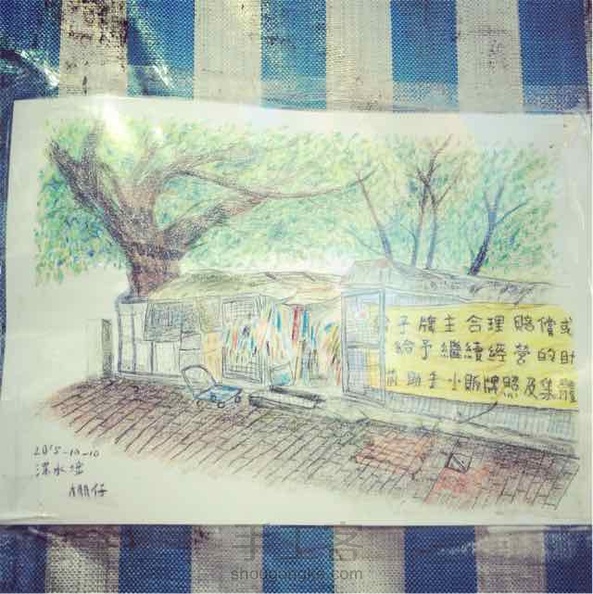 予牌主合理賠償或
給予繼續經營的
助手小販牌照及集體
2015-10-10
深水埗
棚仔
手工客
shougongke.com